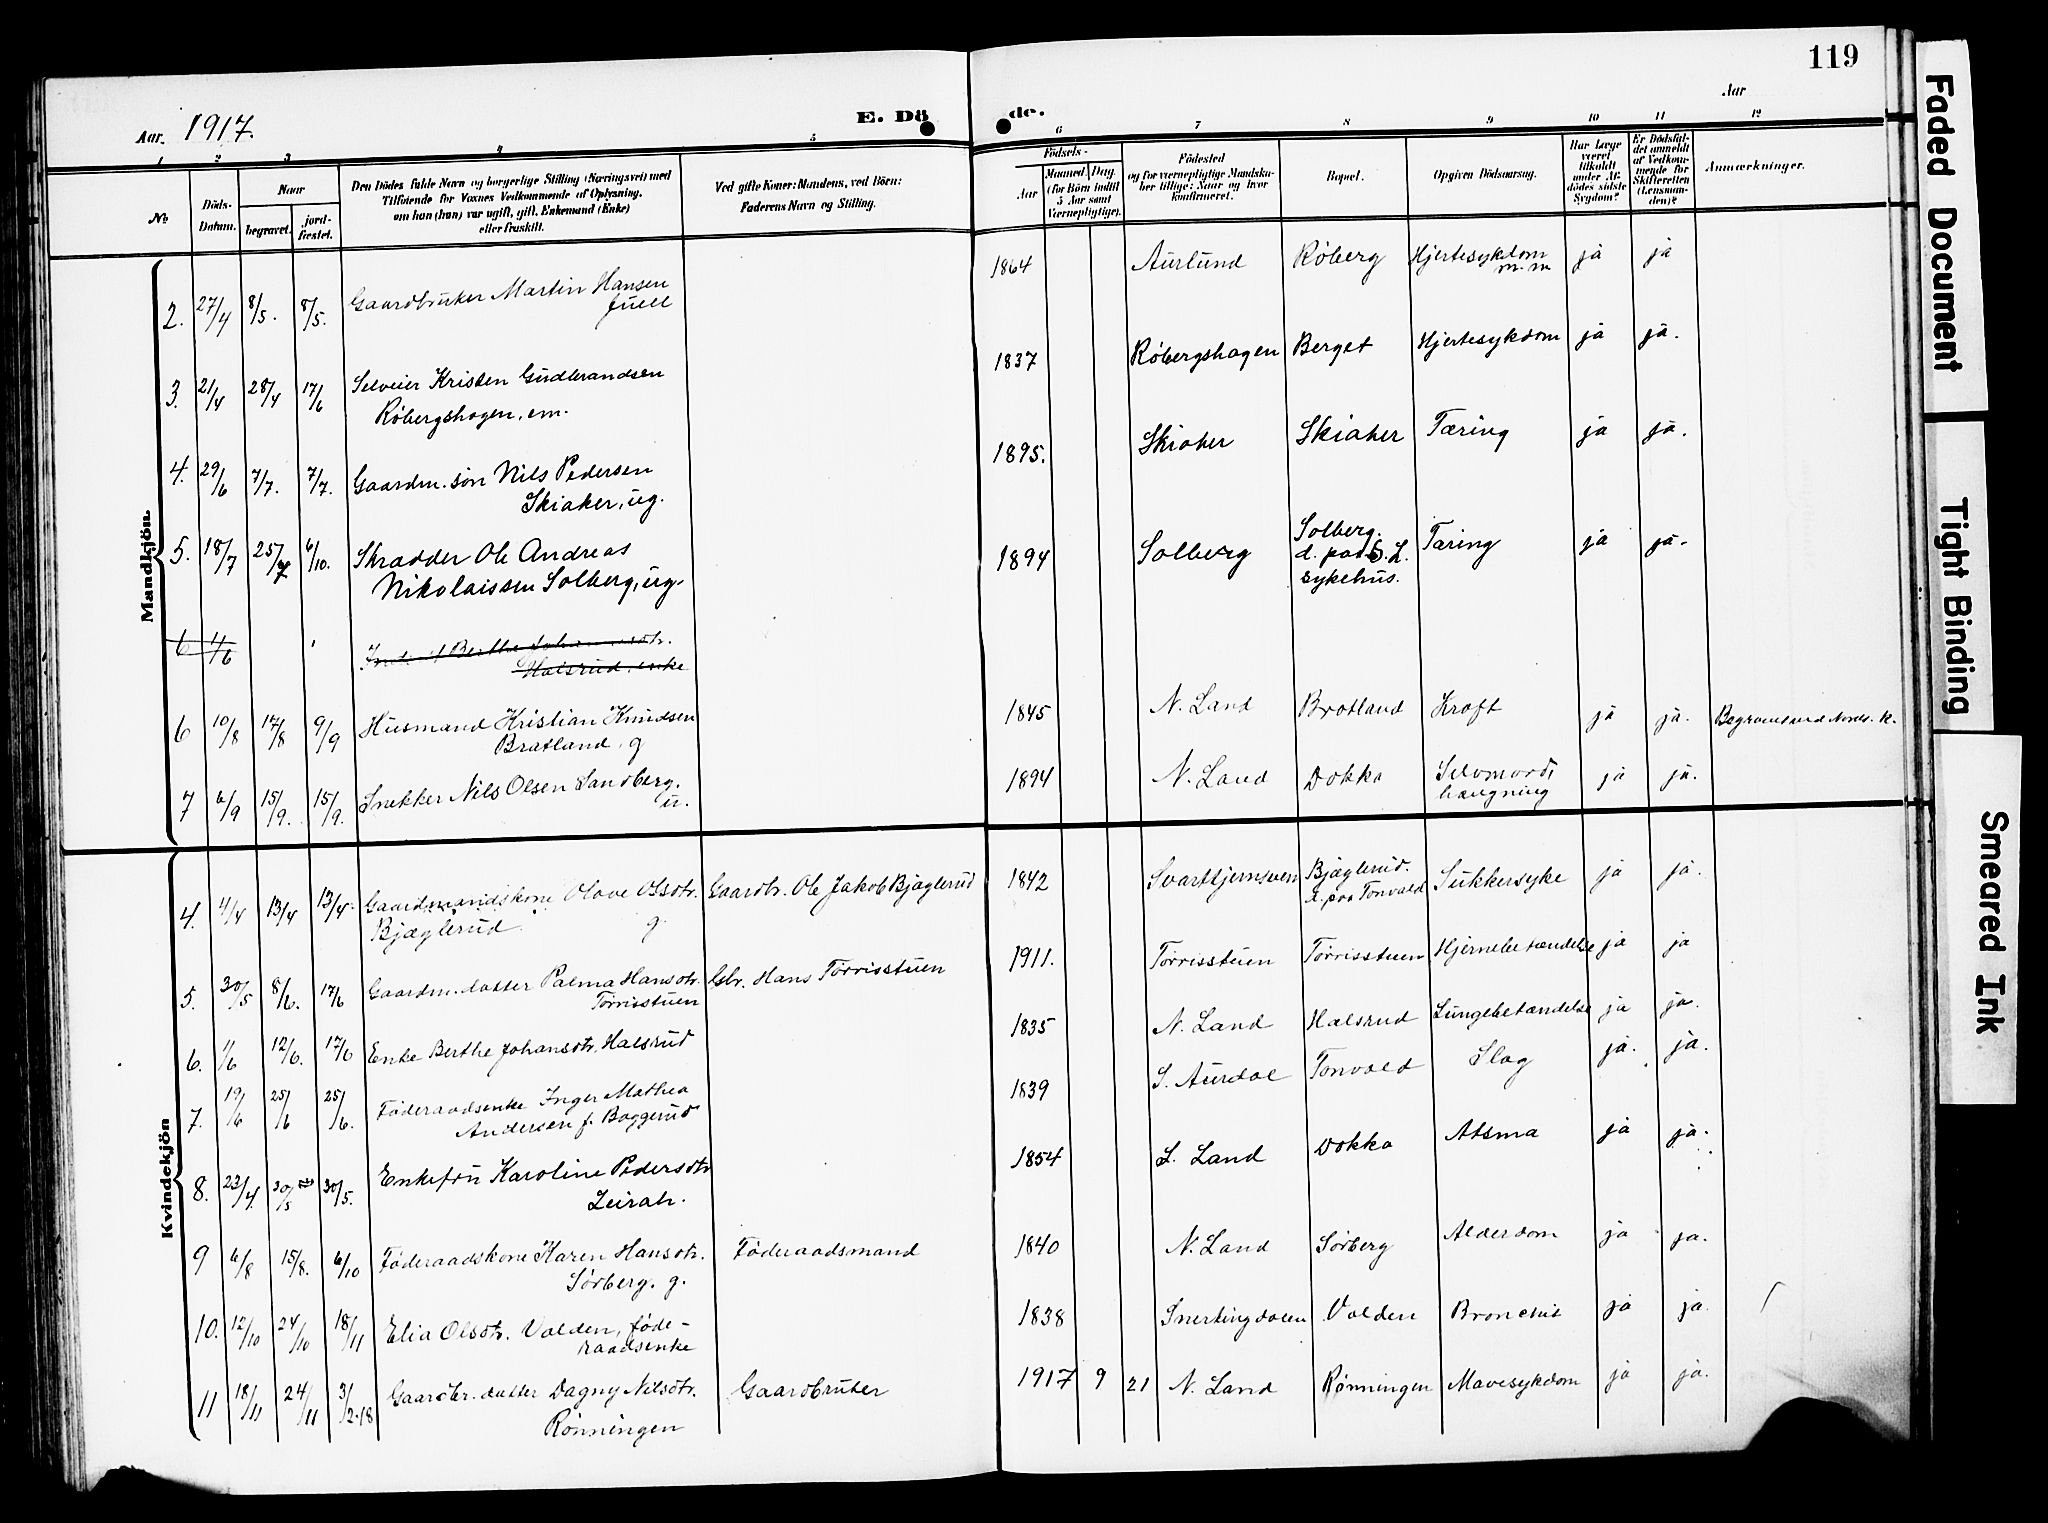 119
Aar. 1917. E. Dö de. Aar
1 2 3 4 5 6 7 8 9 10 11 12
№
Döds-
Datum.
Naar
begravet.
jord-
fæstet.
Den Dödes fulde Navn og borgerlige Stilling (Næringsvei) med
Tilföiende for Voxnes Vedkommende af Oplysning,
om han (hun) var ugift, gift, Enkemand (Enke)
eller fraskilt.
Ved gifte Koner: Mandens, ved Börn:
Faderens Navn og Stilling.
Födsels-
Aar
Maaned Dag
(for Börn indtil
5 Aar samt
Værnepligtige).
Födested
og for værnepligtige Mandska-
ber tillige: Naar og hvor
konfirmeret.
Bopæl.
Opgiven Dödsaarsag.
Har Læge
været
tilkaldt
under Af-
dödes sidste
Sygdom?
Er Dödsfal-
det anmeldt
af Vedkom-
mende for
Skifteretten
(Lensman-
den)?
Anmærkninger.
Mandkjön.
2. 27/4 8/5. 8/5. Gaardbruker Martin Hansen
Juell
1864 Aurlund Røberg Hjertesykdom
m.m
ja ja
3. 21/4 28/4 17/6 Selveier Kristen Gudbrandsen
Røbergshagen, em.
1837 Røbergshagen Berget Hjertesykdom ja ja.
4. 29/6 7/7. 7/7. Gaardm. søn Nils Pedersen
Skiaker, ug.
1895. Skiaker Skiaker Tæring ja ja.
5. 18/7 25/7 6/10. Skrædder Ole Andreas
Nikolaissen Solberg, ug.
1894 Solberg Solberg.
d. paa S. L.
sykehus.
Tæring ja ja.
6 1/6 Berthe
Halsrud, enke
6 10/8 17/8 9/9 Husmand Kristian Knudsen
Bratland, g
1845 N. Land Bratland Kræft ja ja.
7 6/9 15/9. 15/9. Snekker Nils Olsen Sandberg.
u.
1894 N. Land Dokka Selvmord,
hængning
ja ja.
Kvindekjön
4. 4/4 13/4 13/4. Gaardmandskone Olave Olsdtr.
Bjæglerud g.
Gaardbr. Ole Jakob Bjæglerud 1842 Svarttjernsven Bjæglerud.
d. paa Tonvald
Sukkersyke ja ja.
5. 30/5 8/6. 17/6 Gaardm. datter Palma Hansdtr.
Tørrisstuen
Gbr. Hans Tørrisstuen 1911. Tørrisstuen Tørrisstuen Hjernebetændelse ja ja
6. 1/6 12/6. 17/6 Enke Berthe Johansdtr. Halsrud 1835 N. Land Halsrud Lungebetændelse ja ja.
7. 19/6 25/6 25/6. Føderaadsenke Inger Mathea
Andersen f. Baggerud
1839 S. Aurdal Tonvald Slag ja. ja.
8. 23/4. 30/5 30/5. Enkefru Karoline Pedersdtr
Leirah.
1854 S. Land Dokka Atsma ja ja.
9 6/8 15/8. 6/10 Føderaadskone Karen Hansdtr.
Sørberg. g.
Føderaadsmand 1840 N. Land Sørberg Alderdom ja ja.
10. 12/10 24/10 18/11 Elia Olsdtr. Valden, føde-
raadsenke
1838 Snertingdalen Valden Bronchit ja ja.
11 18/11 24/11 3/2-18 Gaardbr. datter Dagny Nilsdtr.
Rønningen
Gaardbruker 1917 9 21 N. Land Rønningen Mavesykdom ja ja.
Faded Document
Tight Binding
Smeared Ink